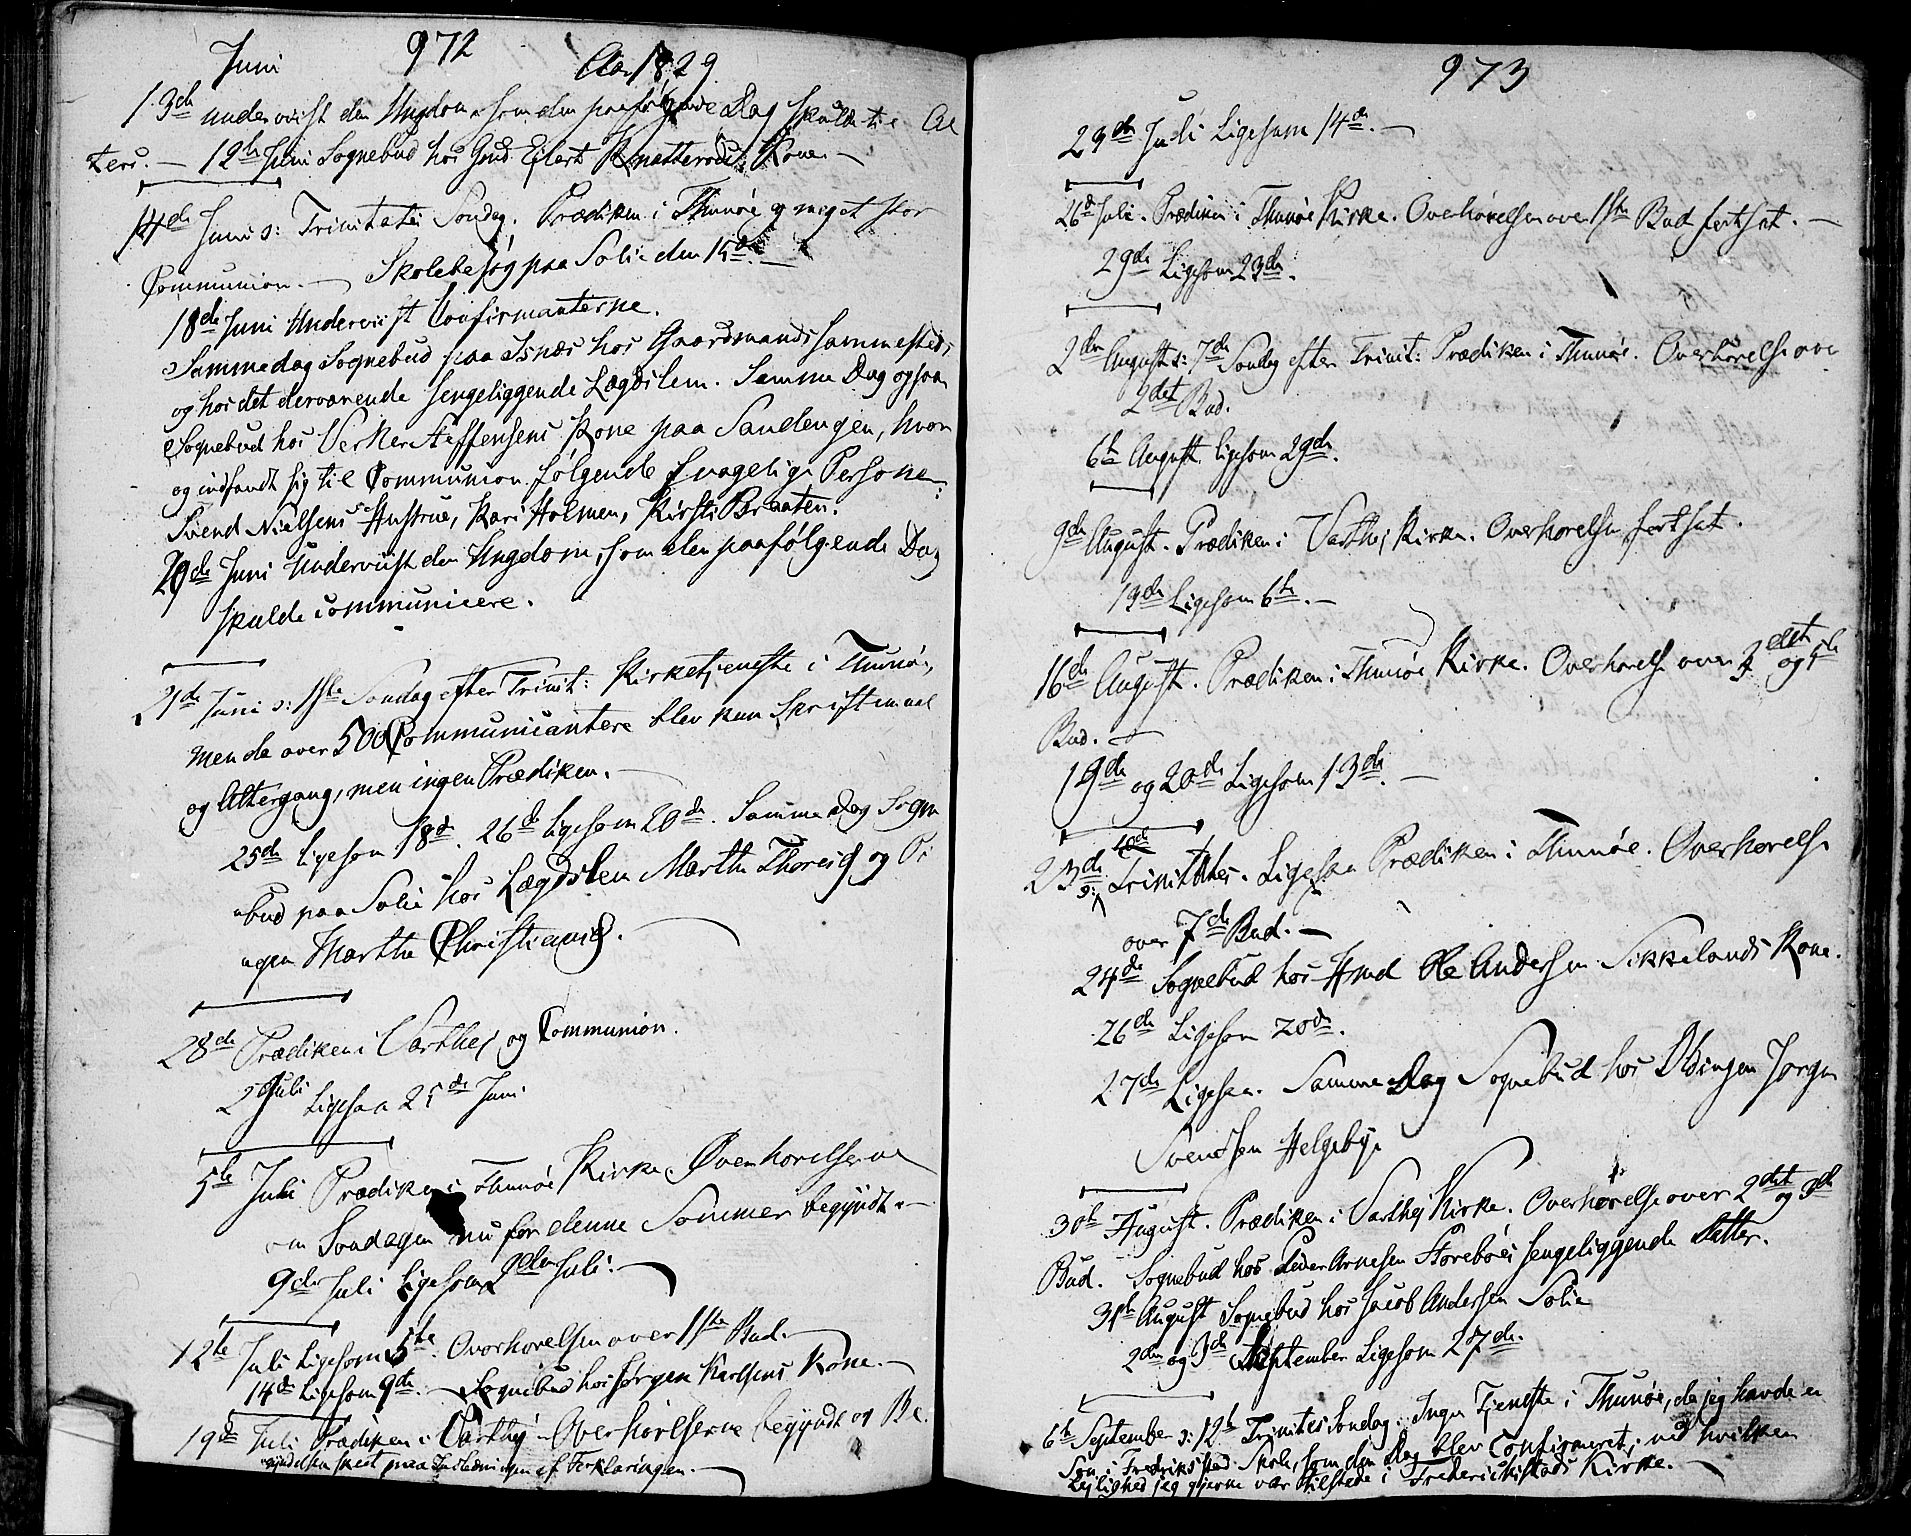 972
Juni Aar 1829
13de underviist den Ungdom, som den paafølgende Dag skulde til Al
ters. — 12te Juni Sognebud hos Gmd. Eilert Knatterøds Kone. —
14de Juni ɔ: Trinitatis Søndag. Prædiken i Thunøe og meget stor
Communion. — Skolebesøg paa Solie den 15de. —
18de Juni Underviist Confirmanterne.
Samme dag Sognebud paa Isnæs hos Gaardmands sammesteds
og hos det derværende sengeliggende Lægdslem. Samme Dag ogsaa
Sognebud hos Verker Steffensens Kone paa Sandengen, hvor
og indfandt sig til Communion følgende svagelige Personer:
Svend Nielsens Hustrue, Kari Holmen, Kirsti Braaten.
20de Juni Underviist den Ungdom, som den paafølgende Dag
skulde communicere.
21de Juni ɔ: 1ste Søndag efter Trinit: Kirketjeneste i Thunøe,
men da over 500 Communicantere blev kun Skriftemaal
og Altergang, men ingen Prædiken. —
25de ligesom 18de. 26de ligesom 20de. Samme Dag Sogne
bud paa Solie hos Lægdslem Marthe Thoresd. og Pi
gen Marthe Christiansd. —
28de Prædiken i Varthej og Communion.
2 Juli Ligesaa 25de Juni
5te Juli Prædiken i Thunøe Kirke, Overhørelserne
om Søndagen nu for denne Sommer begyndt. —
9de Juli Ligesom 2den Juli. —
12te Juli Ligesom 5te. Overhørelsen over 1ste Bud. —
14de Ligesom 9de. — Sognebud hos Jørgen Karlsens Kone. —
19de Juli Prædiken i Varthej — Overhørelserne begyndt og Be
gyndelsen skeet paa Indledningen af Forklaringen. —
973
23de Juli Ligesom 14de. —
26de Juli. Prædiken i Thunøe Kirke. Overhørelsen over 1ste Bud fortsat. —
29de Ligesom 23de.
2den August ɔ: 7de Søndag efter Trinit: Prædiken i Thunøe. Overhørelse over
2det Bud.
6te August ligesom 29de.
9de August. Prædiken i Varthej Kirke. Overhørelsen fortsat.
13de Ligesom 6te. —
16de August. Prædiken i Thunøe Kirke. Overhørelse over 3det og 4de
Bud. —
19de og 20de Ligesom 13de. —
23de ɔ: 10de Trinitates. Ligesaa Prædiken i Thunøe. Overhørelse
over 7de Bud. —
24de Sognebud hos Hmd Ole Andersen Sikkelands Kone.
26de Ligesom 20de.
27de Ligesaa. Samme Dag Sognebud hos Jørgen
Svendsen Helgeby.
30te August. Prædiken i Varthej Kirke. Overhørelse over 2det og 3de
Bud. Sognebud hos Peder Arnesen Storebøes sengeliggende Datter.
31te August Sognebud hos Jacob Andersen Solie
2den og 3de September Ligesom 27de.
6te September ɔ: 12te Trinites Søndag. Ingen Tjeneste i Thunøe, da jeg havde en
Søn i Fredrikstad Skole, som den Dag blev Confirmeret, ved hvilken
Leilighed jeg gjerne var tilstede i Frederickstads Kirke. —